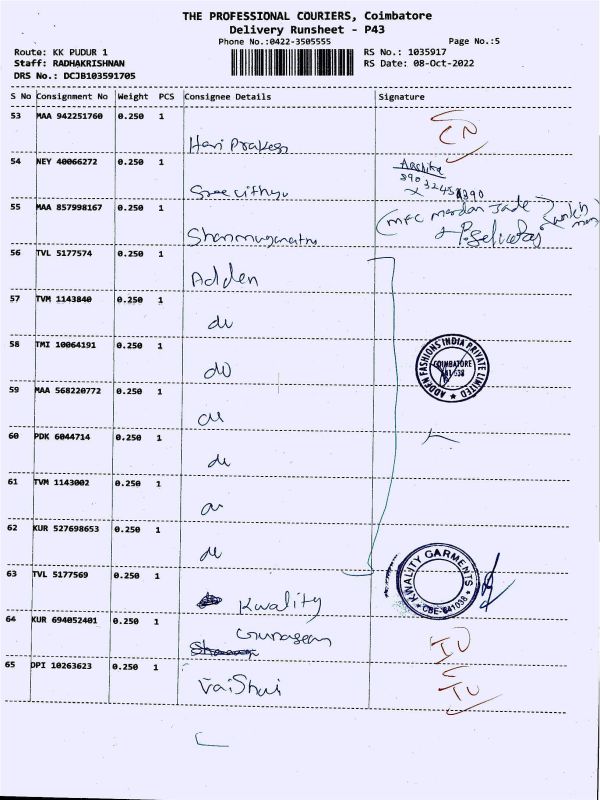 THE PROFESSIONAL COURIERS, Coimbatore
Delivery Runsheet - P43
Phone No.:0422-3505555 Page No.:5
Route: KK PUDUR 1 RS No.: 1035917
Staff: RADHAKRISHNAN RS Date: 08-Oct-2022
DRS No.: DCJB103591705
S No Consignment No Weight PCS Consignee Details Signature
53 MAA 942251760 0.250 1
Hari Prakash
54 NEY 40066272 0.250 1
55 MAA 857998167 0.250 1
56 TVL 5177574 0.250 1
Adden
57 TVM 1143840 0.250 1
do
58 TMI 10064191 0.250 1
do
ADDEN FASHIONS INDIA PRIVATE LIMITED
COIMBATORE
59 MAA 568220772 0.250 1
do
60 PDK 6044714 0.250 1
do
61 TVM 1143002 0.250 1
do
62 KUR 527698653 0.250 1
do
63 TVL 5177569 0.250 1
Kwality
KWALITY GARMENTS
CBE-641038
64 KUR 694052401 0.250 1
65 DPI 10263623 0.250 1